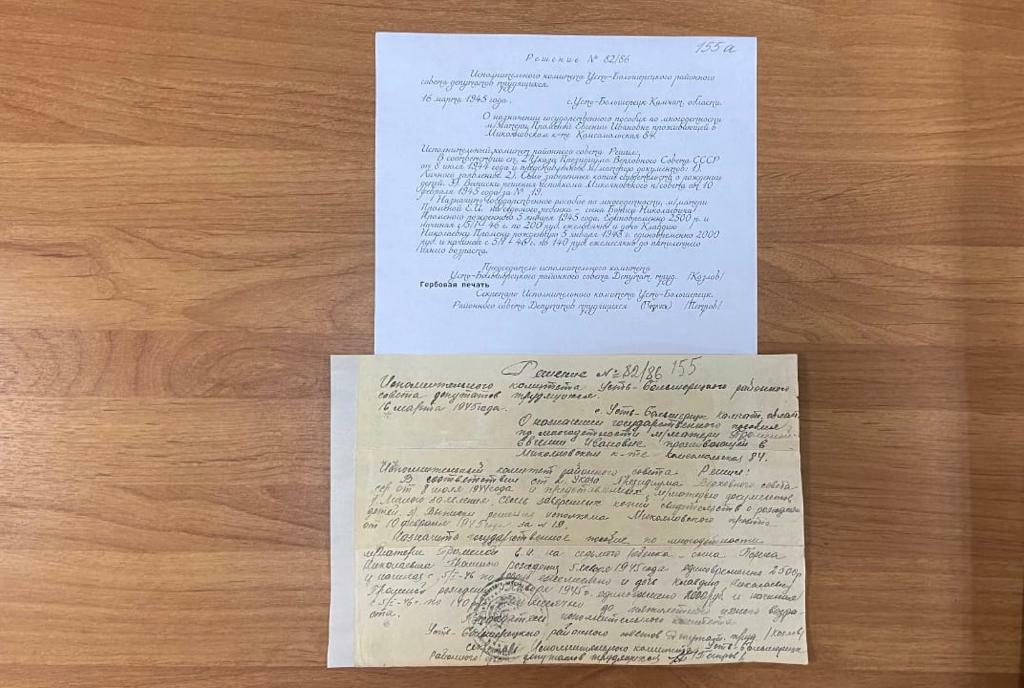 155а
Решение № 82/86
Исполнительного комитета Усть-Большерецкого районного
совета депутатов трудящихся.
16 марта 1945 года. с.Усть-Большерецк Камчат. области.
О назначении государственного пособия по многодетности
м/матери Евгении Ивановне проживающей в
Микояновском к-те Комсомольская 84.
Исполнительный комитет районного совета Решил:
В соответствии ст. 2 Указа Президиума Верховного Совета СССР
от 8 июля 1944 года и представленных м/матерью документов: 1).
Личного заявление 2). Семь заверенных копий свидетельств о рождении
детей. 3) Выписки решения исполкома Микояновского п/совета от 10
февраля 1945 года за № 19.
Назначить государственное пособие по многодетности м/матери
Е.И. на седьмого ребенка - сына Николаевича
рожденного 5 января 1945 года. Единовременно 2500 р. и
начиная с 5/I - 46 г. по 200 руб. ежемесячно и дочь Клавдию
Николаевну рожденную 5 января 1945 г. единовременно 2000
руб. и начиная с 5/I - 46 г. по 140 руб. ежемесячно до пятилетнего
возраста.
Председатель исполнительного комитета
Усть-Большерецкого районного совета Депутат. труд. /Козлов/
Гербовая печать
Секретарь Исполнительного комитета Усть-Большерецк.
Районного совета Депутатов трудящихся /Петров/
Решение № 82/86 155
Исполнительного комитета Усть-Большерецкого районного
совета депутатов трудящихся.
16 марта 1945 года.
с. Усть-Большерецк Камчат.
О назначении государственного пособия
по многодетности м/матери
Евгении Ивановне проживающей в
Микояновском к-те Комсомольская 84.
Исполнительный комитет районного совета Решил:
В соответствии ст 2 Указа Президиума Верховного Совета
от 8 июля 1944 года и представленных м/матерью документов
Личного заявление Семь заверенных копий свидетельств о рождении
детей. 3) Выписки решения исполкома Микояновского
от 10 февраля 1945 года за № 19.
Назначить государственное пособие по многодетности
м/матери Е.И. на седьмого ребенка - сына
Николаевича 5 января 1945 года единовременно 2500 р
и начиная с 5/I-46 по ежемесячно и дочь Клавдию Николаевну
января 1945 г. единовременно 2000 руб и начиная
с 5/I-46 г. по 140 ежемесячно до пятилетнего
Председатель исполнительного комитета
Усть-Большерецкого районного советов депутат. труд /Козлов/
Секретарь Исполнительного комитета Усть-Большерецк
Районного депутатов трудящихся /Петров/